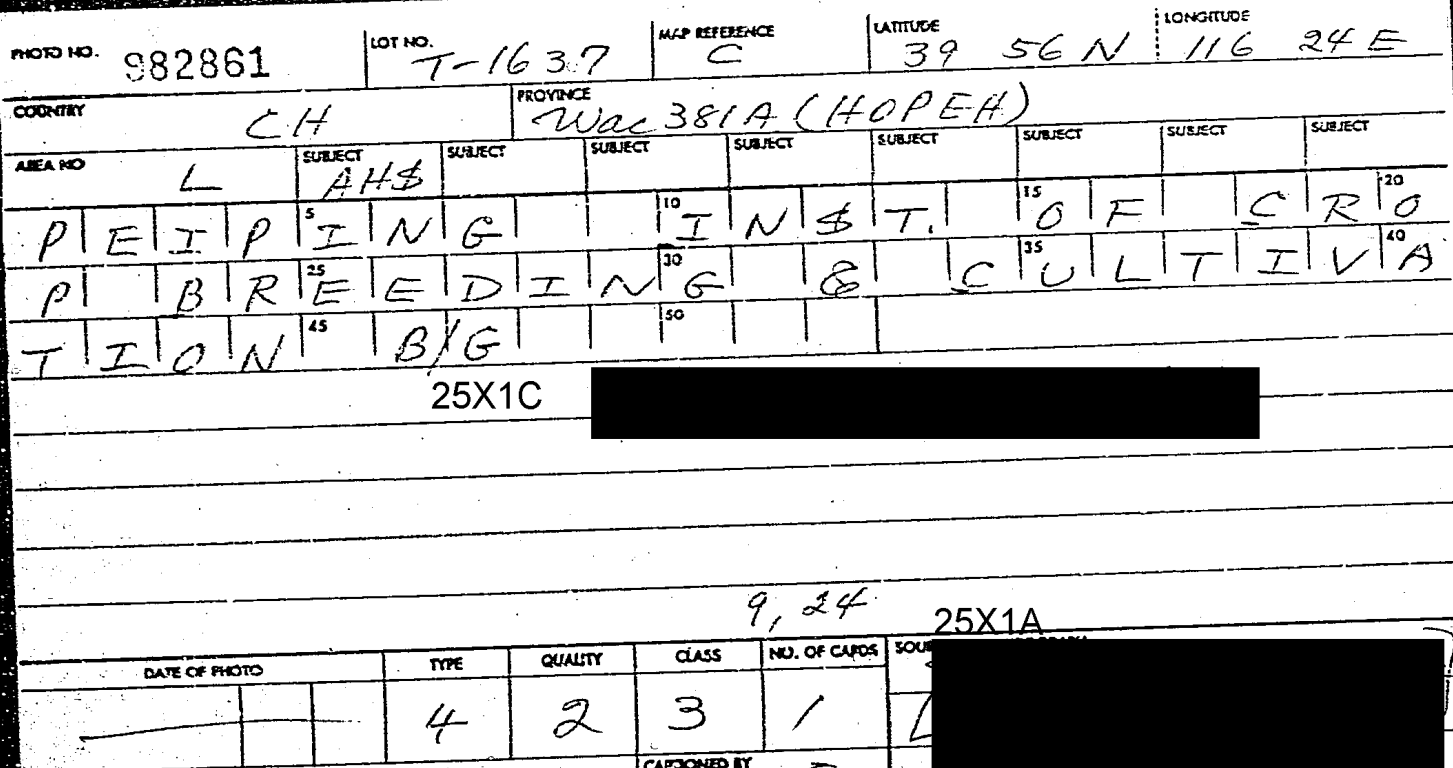 PHOTO NO. 982861 LOT NO. T-1637 MAP REFERENCE C LATITUDE 39 56 N LONGITUDE 116 24 E
COUNTRY CH PROVINCE Wac 381A (HOPEH)
AREA NO L SUBJECT AH$ SUBJECT SUBJECT SUBJECT SUBJECT SUBJECT SUBJECT SUBJECT
5 10 15 20
PEIPING IN$T. OF CRO
25 30 35 40
P BREEDING & CULTIVA
45 50
TION B/G
25X1C
9, 24
25X1A
DATE OF PHOTO TYPE QUALITY CLASS NO. OF CARDS
4 2 3 1
CAPTIONED BY